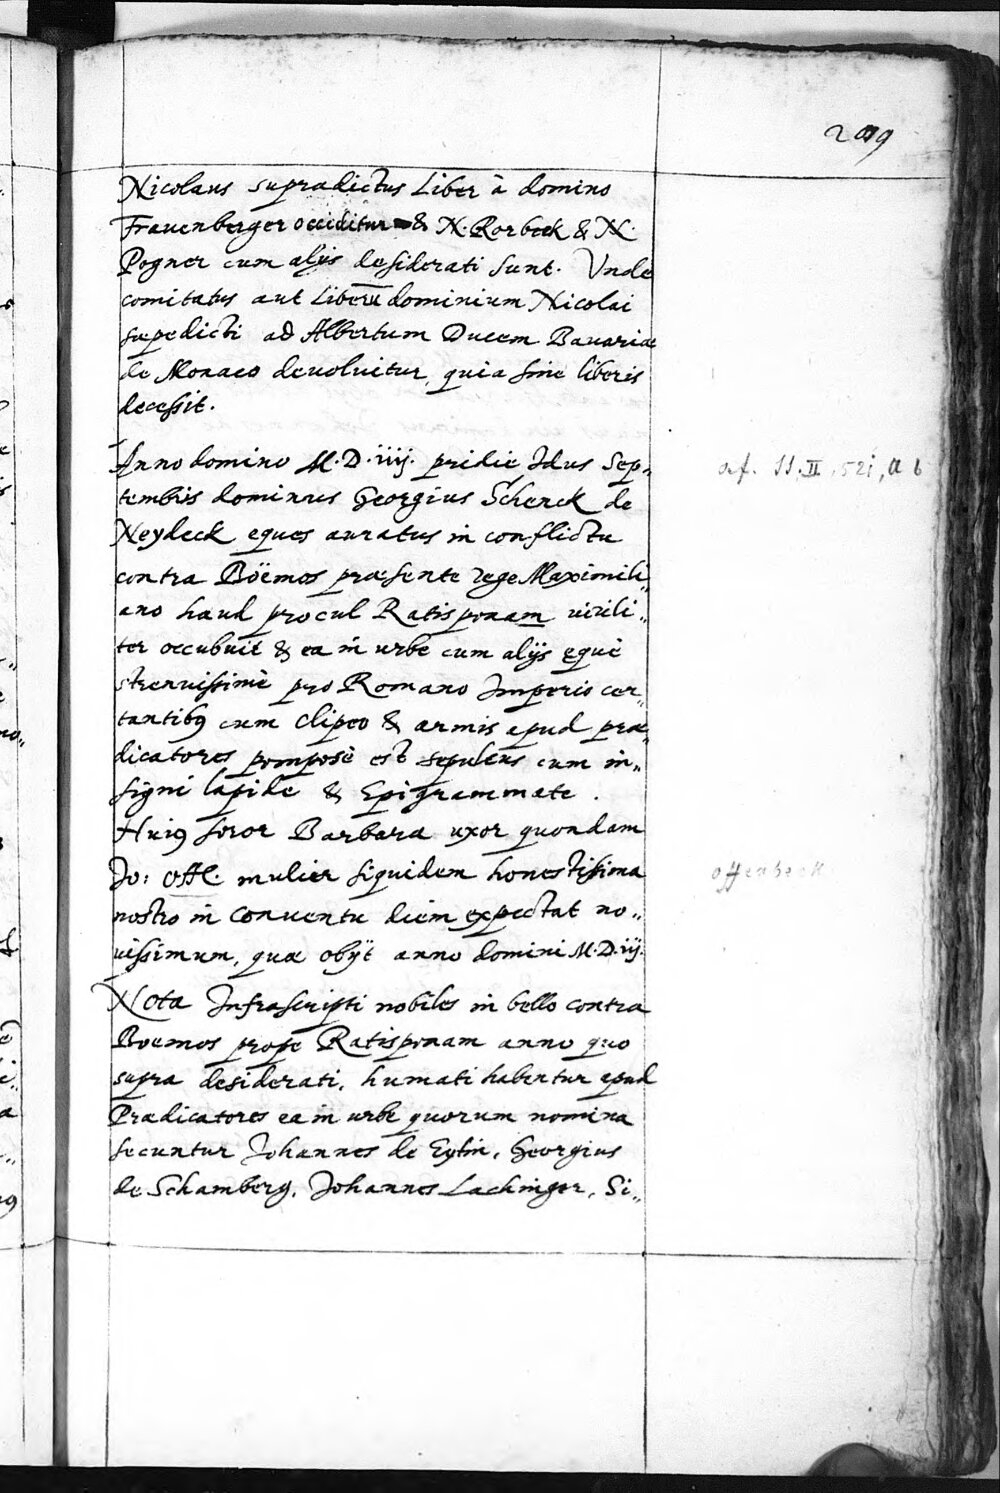 209
Nicolaus supradictus Liber à domino
Frauenberger occiditur & N. Rorbeck & N.
Pogner cum alijs desiderati sunt. Vnde
comitatus aut Liberū dominium Nicolai
sæpedicti ad Albertum Ducem Bauariæ
de Monaco deuoluitur, quia sine liberis
decessit.
Anno domino M.D.iiij. pridie Idus Sep„
tembris dominus Georgius Schenck de
Neydeck eques auratus in conflictu
contra Böemos præsente rege Maximili„
ano haud procul Ratisponam uirili„
ter occubuit & ea in urbe cum alijs equè
strenuissimè pro Romano Imperio cer„
tantibꝰ cum clipeo & armis apud præ„
dicatores pomposè est sepultus cum in„
signi lapide & Epigrammate.
Huiꝰ soror Barbara uxor quondam
Jo: Off. mulier siquidem honestissima
nostro in conuentu diem expectat no„
uissimum, quæ obijt anno domini M.D.iij.
Nota Infrascripti nobiles in bello contra
Boemos prope Ratisponam anno quo
supra desiderati, humati habentur apud
Prædicatores ea in urbe quorum nomina
secuntur Johannes de Eytin, Georgius
de Schamberg, Johannes Lachinger, Si„
cf. SS. II, 521, a b
offenbeck